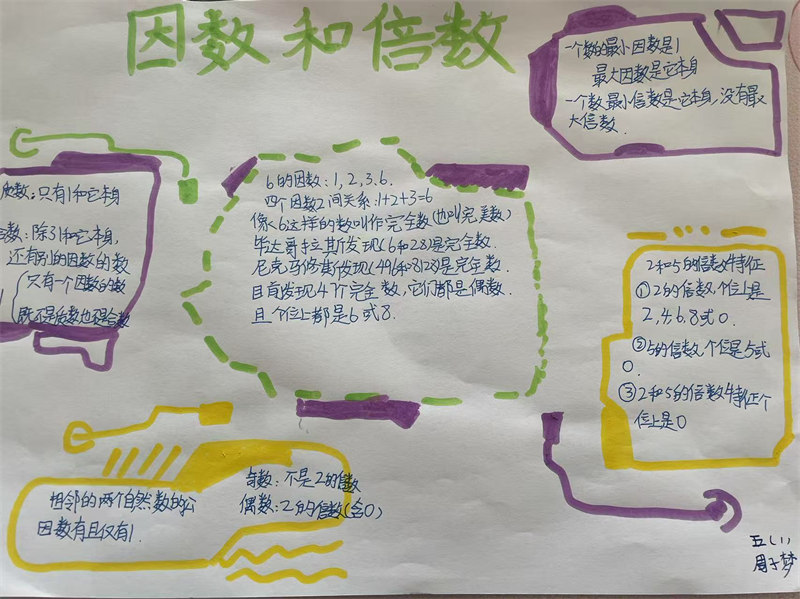 因数和倍数
一个数的最小因数是1
最大因数是它本身
一个数最小倍数是它本身,没有最
大倍数.
质数:只有1和它本身
合数:除引和它本身,
还有别的因数的数
只有一个因数的数
既不是质数也不是合数
6的因数:1,2,3.6.
四个因数之间关系:1+2+3=6
像6这样的数叫作完全数(也叫完美数)
毕达哥拉斯发现(6和28)是完全数.
尼克马修斯发现(496和8128)是完全数.
目前发现47个完全数,它们都是偶数.
且个位上都是6或8.
2和5的倍数特征
①2的倍数个位上是
2,4,6.8或0.
②5的倍数个位是5或
0.
③2和5的倍数特征个
位上是0
相邻的两个自然数的公
因数有且仅有1.
奇数:不是2的倍数
偶数:2的倍数(含0)
五(1)
周子梦